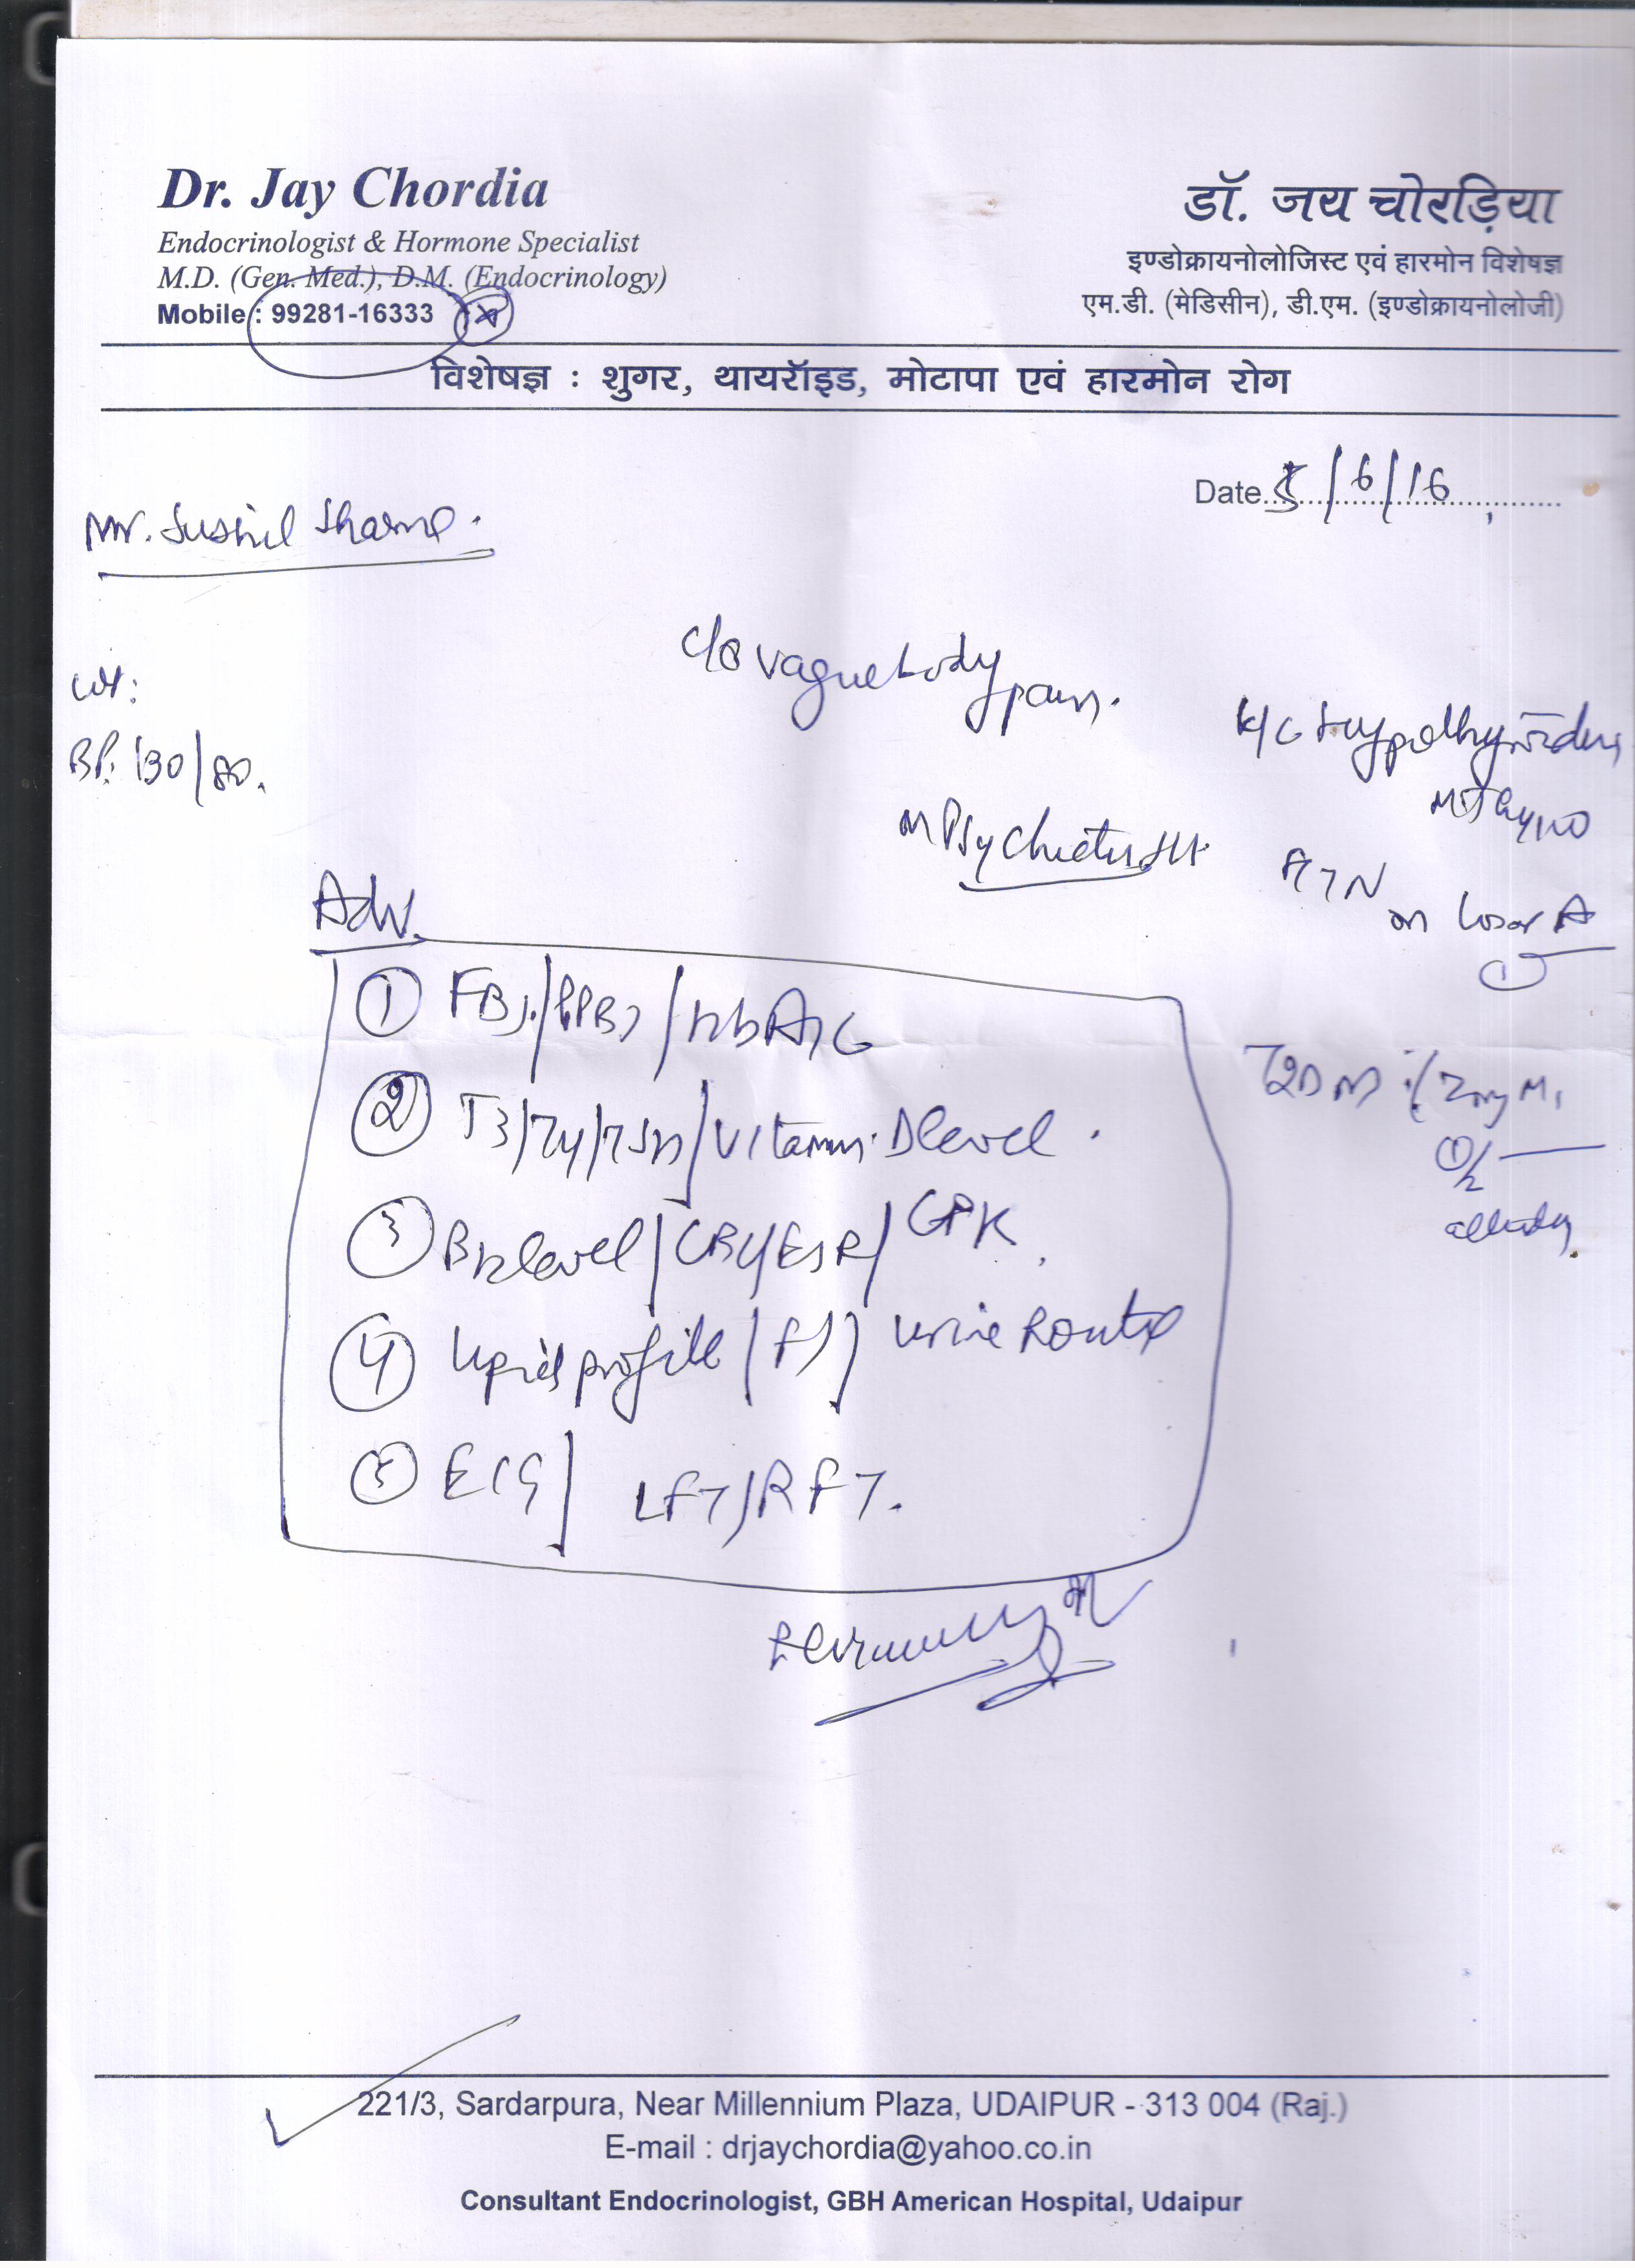 Dr. Jay Chordia
Endocrinologist & Hormone Specialist
M.D. (Gen. Med.), D.M. (Endocrinology)
Mobile : 99281-16333
डॉ. जय चोरड़िया
इण्डोक्रायनोलोजिस्ट एवं हारमोन विशेषज्ञ
एम.डी. (मेडिसीन), डी.एम. (इण्डोक्रायनोलोजी)
विशेषज्ञ : शुगर, थायरॉइड, मोटापा एवं हारमोन रोग
Date 5/6/16
Mr. Sushil Sharma.
c/o vague body pain.
Wt:
BP: 130/80.
K/C Hypothyroidism
on Thyro
on Psychiatric
HTN
on Losar A
①
Adv.
① FBS/PPBS/HbA1C
T2DM
② T3/T4/TSH/Vitamin D level.
③ B12 level/CBC/ESR/CPK.
④ Lipid profile/(F)/Urine Routine
⑤ ECG/ LFT/RFT.
221/3, Sardarpura, Near Millennium Plaza, UDAIPUR - 313 004 (Raj.)
E-mail : drjaychordia@yahoo.co.in
Consultant Endocrinologist, GBH American Hospital, Udaipur